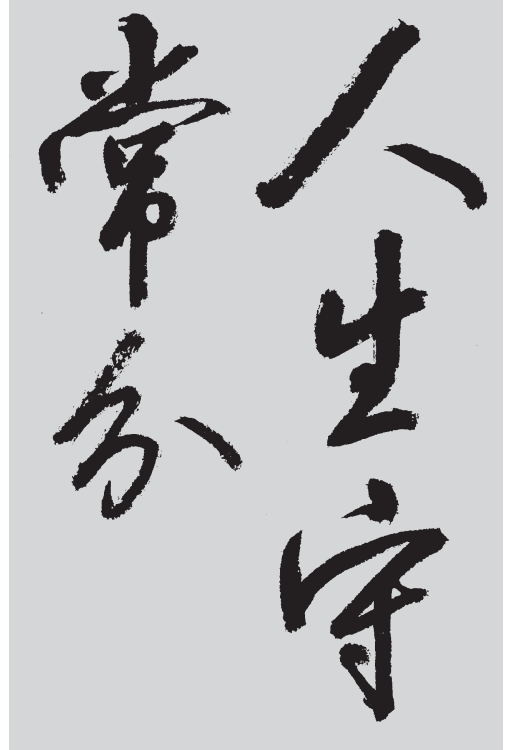 人生守
常分